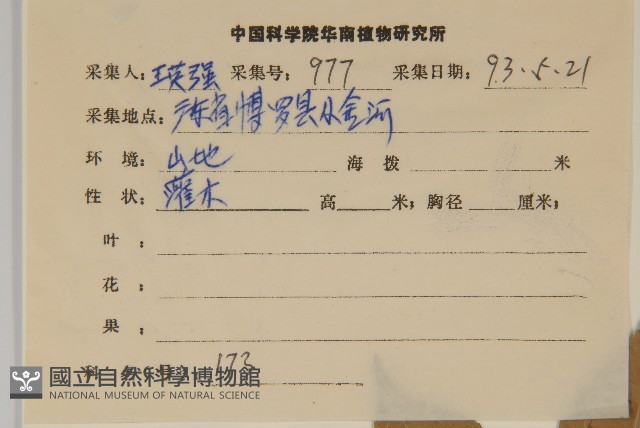 中国科学院华南植物研究所
采集人：王英强 采集号：977 采集日期：93.5.21
采集地点：广东省博罗县小金河
环 境：山地 海 拨 米
性 状：灌木 高 米；胸径 厘米；
叶：
花：
果：
科 173
國立自然科學博物館
NATIONAL MUSEUM OF NATURAL SCIENCE